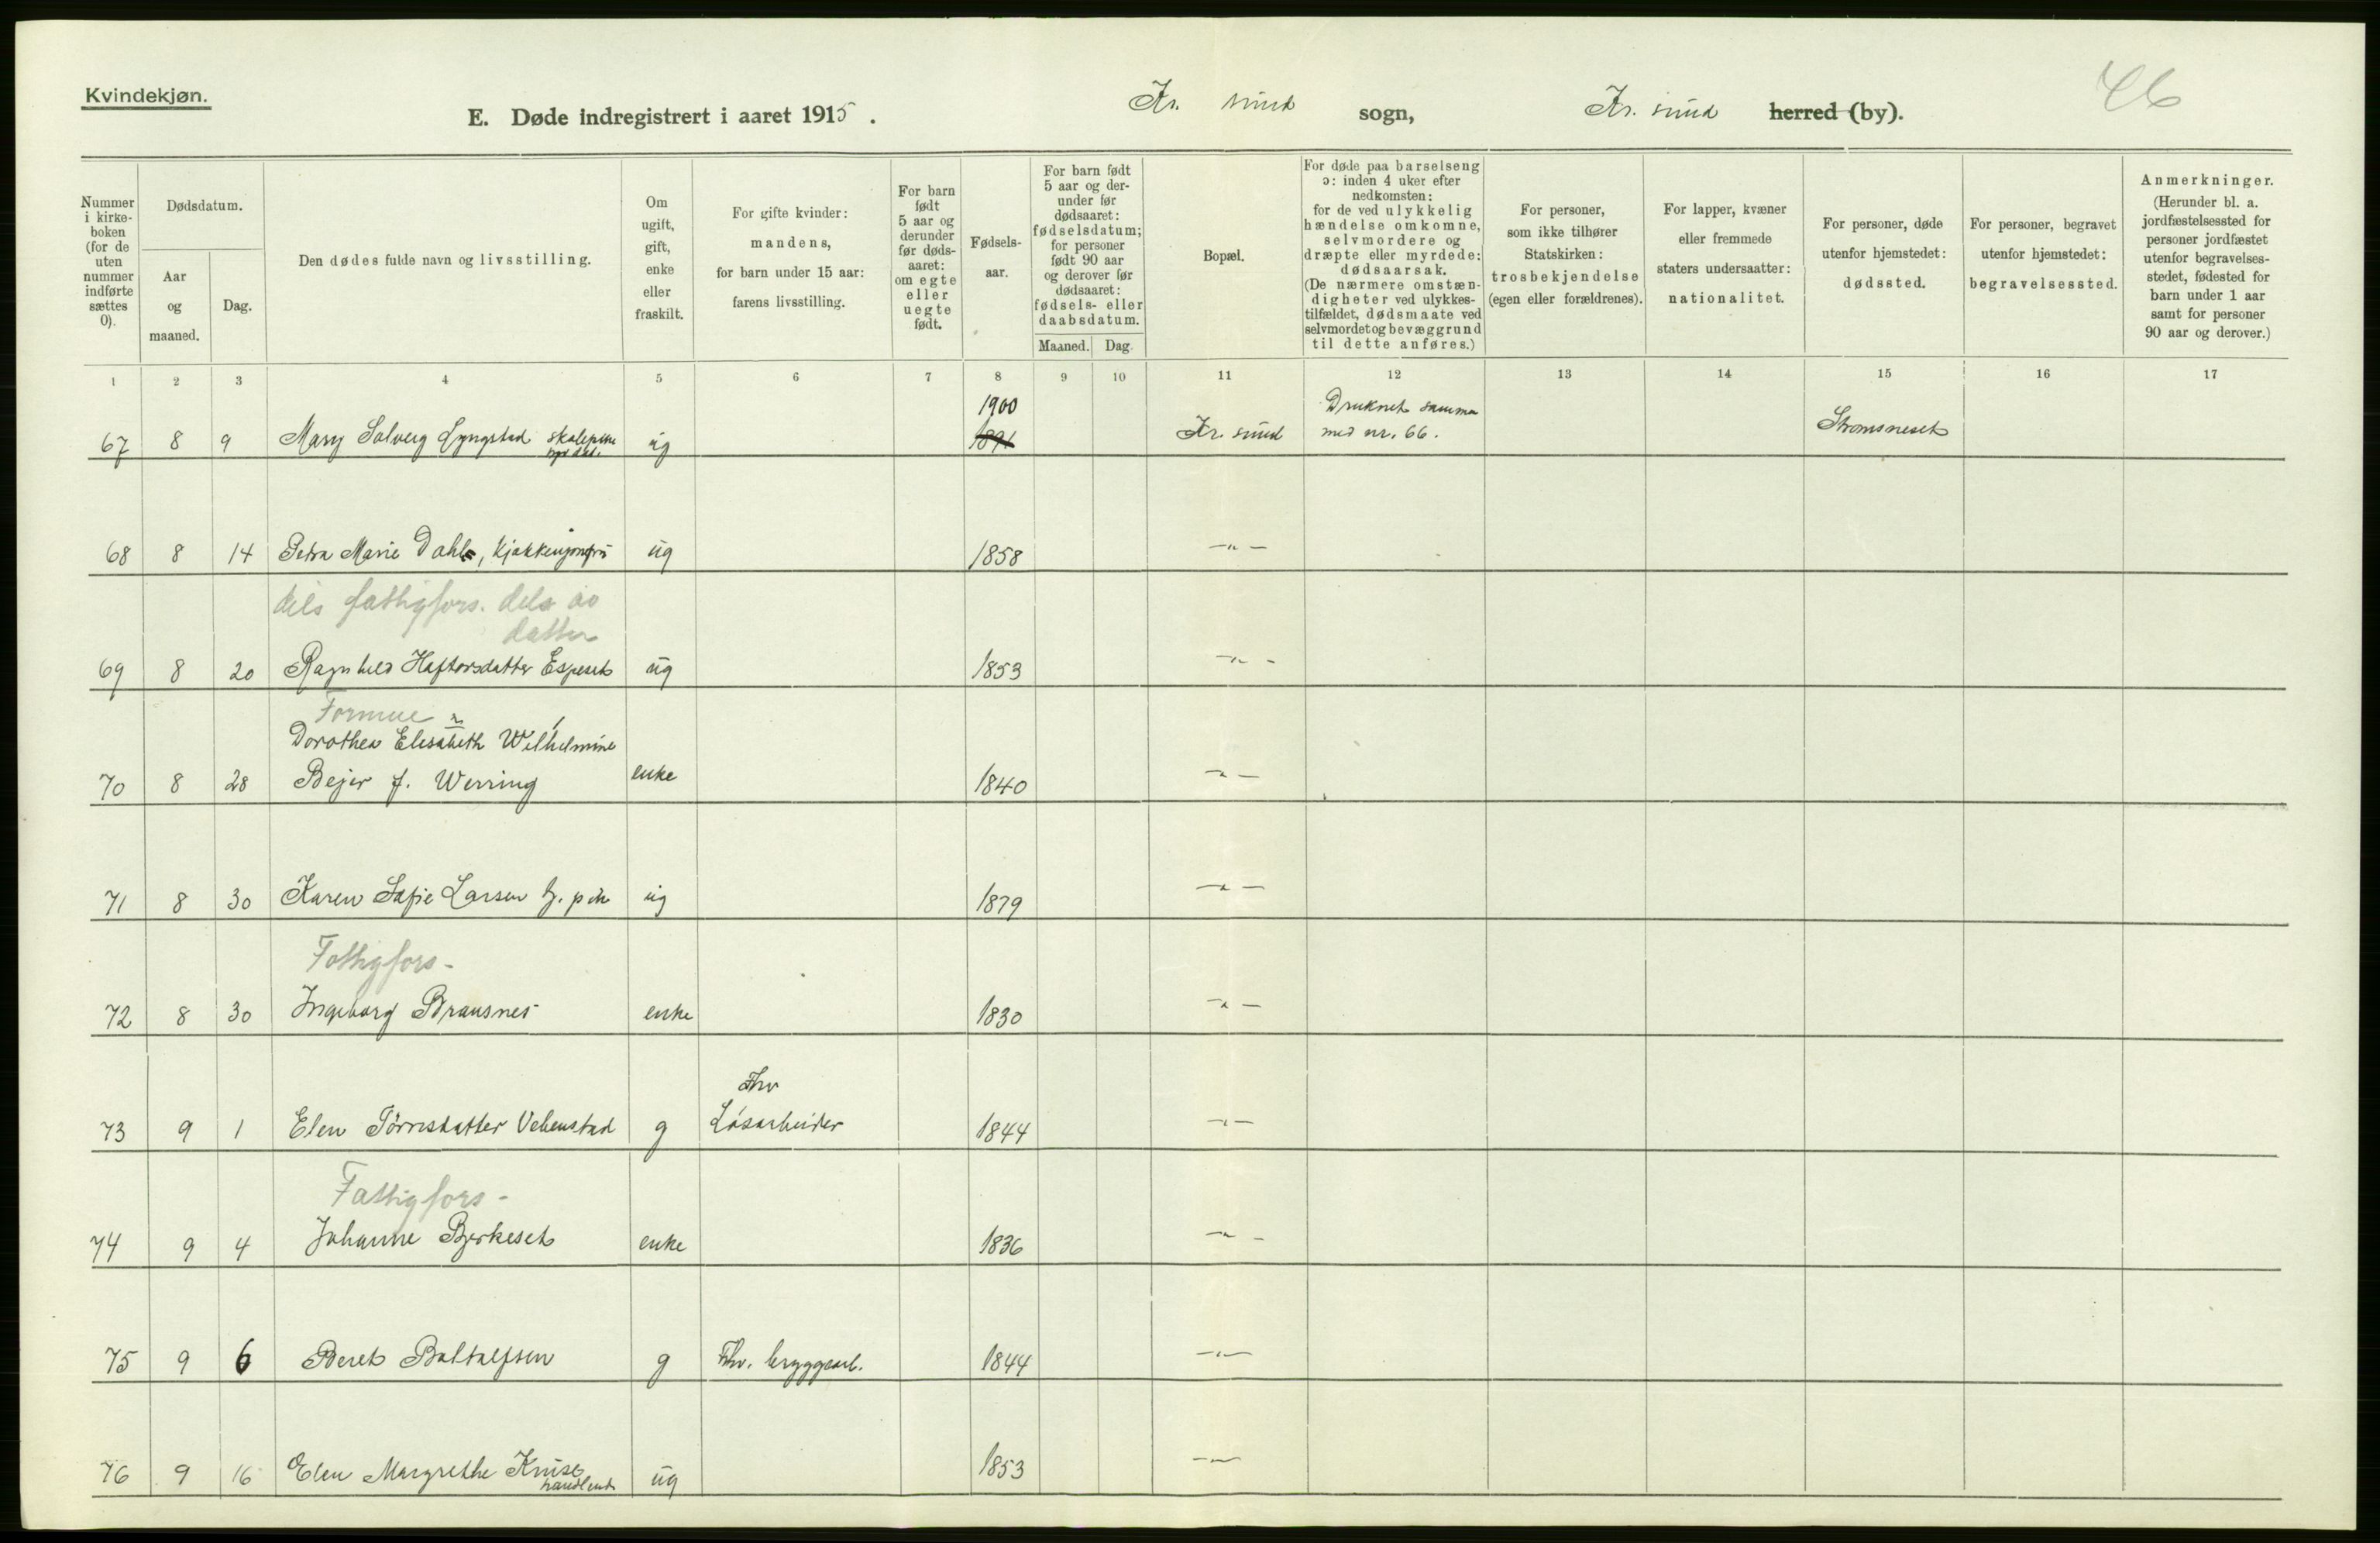 Kvindekjøn.
E. Døde indregistrert i aaret 1915.
Kr. sund sogn,
Kr. sund herred (by).
46
Nummer i kirkeboken (for de uten nummer indførte sættes 0).
Dødsdatum.
Aar og maaned.
Dag.
Den dødes fulde navn og livsstilling.
Om ugift, gift, enke eller fraskilt.
For gifte kvinder: mandens, for barn under 15 aar: farens livsstilling.
For barn født 5 aar og derunder før dødsaaret: om egte eller uegte født.
Fødselsaar.
For barn født 5 aar og derunder før dødsaaret: fødselsdatum; for personer født 90 aar og derover før dødsaaret: fødsels- eller daabsdatum.
Maaned. Dag.
Bopæl.
For døde paa barselseng ɔ: inden 4 uker efter nedkomsten: for de ved ulykkelig hændelse omkomne, selvmordere og dræpte eller myrdede: dødsaarsak. (De nærmere omstændigheter ved ulykkestilfældet, dødsmaate ved selvmordet og bevæggrund til dette anføres.)
For personer, som ikke tilhører Statskirken: trosbekjendelse (egen eller forældrenes).
For lapper, kvæner eller fremmede staters undersaatter: nationalitet.
For personer, døde utenfor hjemstedet: dødssted.
For personer, begravet utenfor hjemstedet: begravelsessted.
Anmerkninger. (Herunder bl. a. jordfæstelsessted for personer jordfæstet utenfor begravelsesstedet, fødested for barn under 1 aar samt for personer 90 aar og derover.)
1 2 3 4 5 6 7 8 9 10 11 12 13 14 15 16 17
67 8 9 Mary Solveig Lyngstad skolepike ug 1900 1891 Kr. sund Druknet samme med nr. 66. Strømsneset
68 8 14 Petra Marie Dahl, Kjøkkenjomfru ug 1858 -"-
dels fattigfors. dels av datter
69 8 20 Ragnhild Haftorsdatter Espeset ug 1853 -"-
Formue
Dorothea Elisabeth Wilhelmine
70 8 28 Bejer f. Werring enke 1840 -"-
71 8 30 Karen Sofie Larsen ug 1879 -"-
Fattigfors-
72 8 30 Ingeborg Brausnes enke 1830 -"-
Fhv
73 9 1 Elen Törrisdatter Vebenstad g Løsarbeider 1844 -"-
Fattigfors-
74 9 4 Johanne Bjerkeset enke 1836 -"-
75 9 6 Beret g Fhv. bryggearb. 1844 -"-
76 9 16 Elen Margrethe Kruse handlende ug 1853 -"-